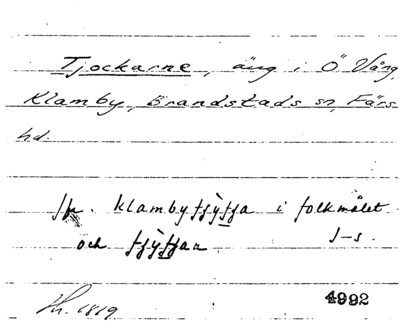 Tjockarne, äng i Ö Vång,
Klamby, Brandstads sn, Färs
hd.
Jfr. klambyfjỳfja i folkmålet
och fjỳfjan J-s.
Hh. 1819 4992